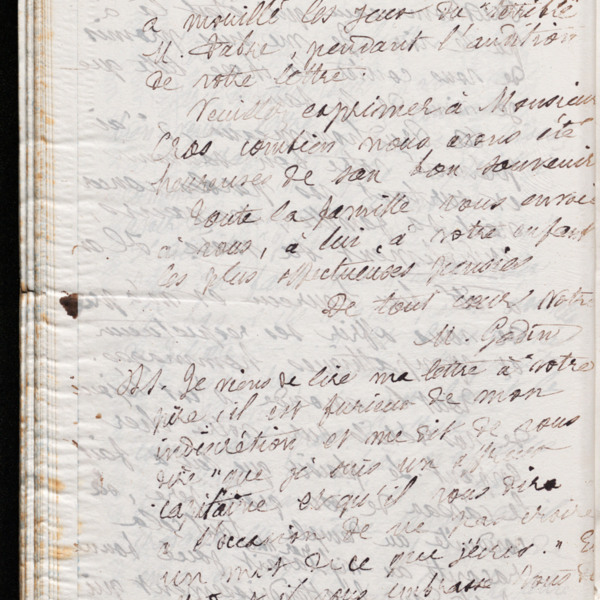 a mouillé les yeux du terrible
M. Fabre, pendant l'audition
de votre lettre.
Veuillez exprimer à Monsieur
Cros combien nous avons été
heureuses de son bon souvenir
Toute la famille vous envoie
à vous, à lui, à votre enfant
les plus affectueuses pensées
De tout cœur Votre
M. Godin
PS. Je viens de lire ma lettre à votre
père ; il est furieux de mon
indiscrétion et me dit de vous
dire "que je suis un
capitaine et qu'il vous dira
à l'occasion de ne pas croire
un mot de ce que j'écris." Et
il vous embrasse